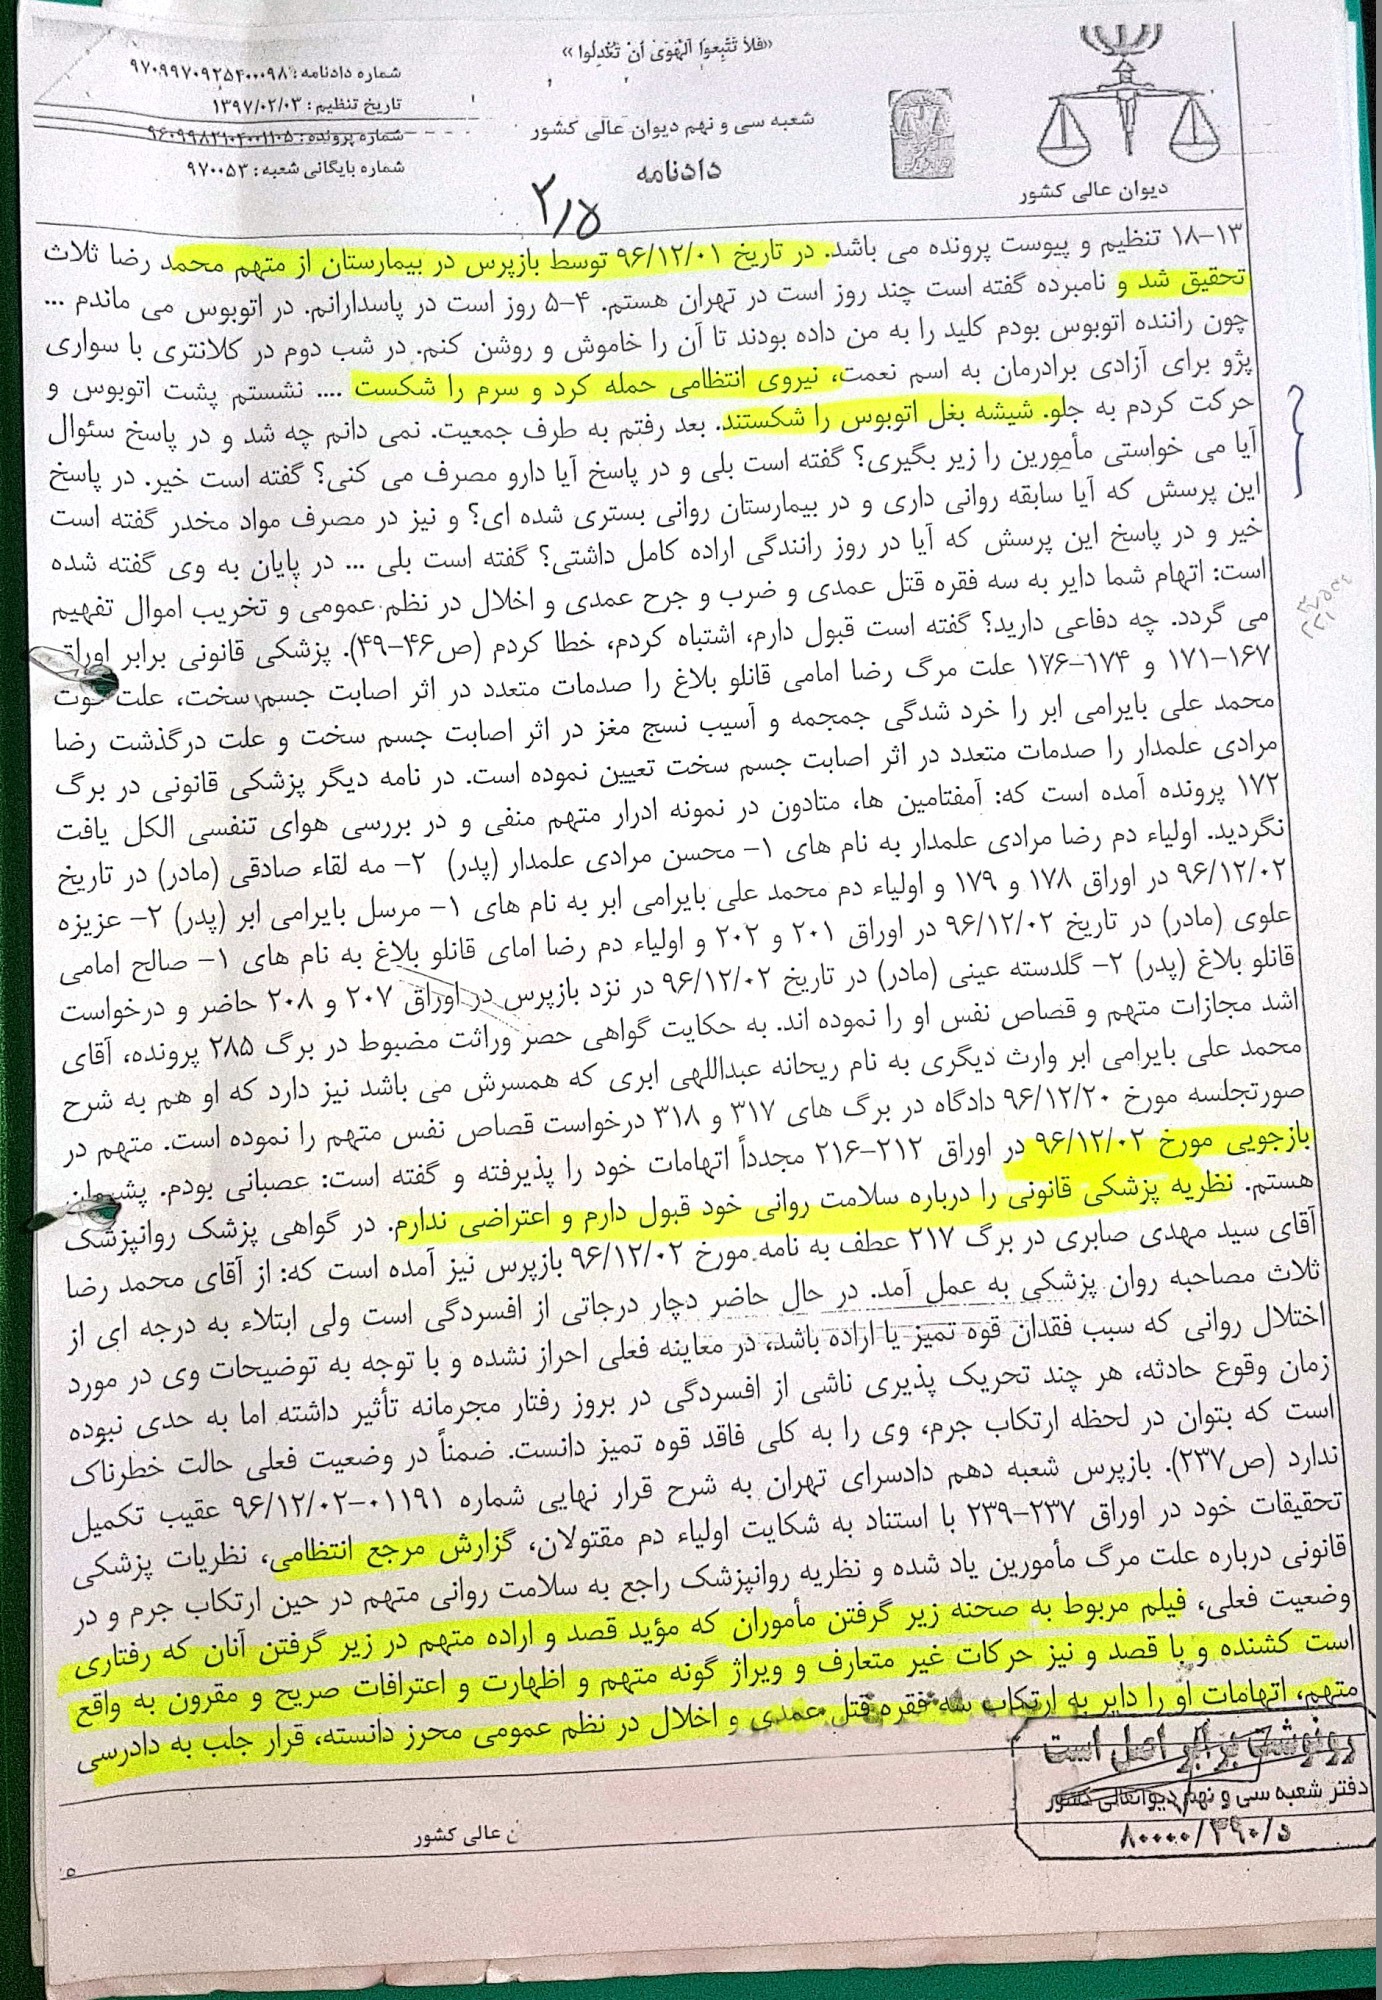 «فَلَا تَتَّبِعُوا الْهَوَىٰ أَنْ تَعْدِلُوا»
شماره دادنامه: ۹۷۰۹۹۷۰۹۲۵۴۰۰۰۹۸
تاریخ تنظیم: ۱۳۹۷/۰۲/۰۳
شماره پرونده: ۹۶۰۹۹۸۲۱۰۴۰۰۱۱۰۵
شماره بایگانی شعبه: ۹۷۰۰۵۳
شعبه سی و نهم دیوان عالی کشور
دادنامه
دیوان عالی کشور
۲/۵
۱۳-۱۸ تنظیم و پیوست پرونده می باشد. در تاریخ ۹۶/۱۲/۰۱ توسط بازپرس در بیمارستان از متهم محمد رضا ثلاث
تحقیق شد و نامبرده گفته است چند روز است در تهران هستم. ۴-۵ روز است در پاسدارانم. در اتوبوس می ماندم ...
چون راننده اتوبوس بودم کلید را به من داده بودند تا آن را خاموش و روشن کنم. در شب دوم در کلانتری با سواری
پژو برای آزادی برادرمان به اسم نعمت، نیروی انتظامی حمله کرد و سرم را شکست .... نشستم پشت اتوبوس و
حرکت کردم به جلو. شیشه بغل اتوبوس را شکستند. بعد رفتم به طرف جمعیت. نمی دانم چه شد و در پاسخ سئوال
آیا می خواستی مأمورین را زیر بگیری؟ گفته است بلی و در پاسخ آیا دارو مصرف می کنی؟ گفته است خیر. در پاسخ
این پرسش که آیا سابقه روانی داری و در بیمارستان روانی بستری شده ای؟ و نیز در مصرف مواد مخدر گفته است
خیر و در پاسخ این پرسش که آیا در روز رانندگی اراده کامل داشتی؟ گفته است بلی ... در پایان به وی گفته شده
است: اتهام شما دایر به سه فقره قتل عمدی و ضرب و جرح عمدی و اخلال در نظم عمومی و تخریب اموال تفهیم
می گردد. چه دفاعی دارید؟ گفته است قبول دارم، اشتباه کردم، خطا کردم (ص۴۶-۴۹). پزشکی قانونی برابر اوراق
۱۶۷-۱۷۱ و ۱۷۴-۱۷۶ علت مرگ رضا امامی قانلو بلاغ را صدمات متعدد در اثر اصابت جسم سخت، علت فوت
محمد علی بایرامی ابر را خرد شدگی جمجمه و آسیب نسج مغز در اثر اصابت جسم سخت و علت درگذشت رضا
مرادی علمدار را صدمات متعدد در اثر اصابت جسم سخت تعیین نموده است. در نامه دیگر پزشکی قانونی در برگ
۱۷۲ پرونده آمده است که: آمفتامین ها، متادون در نمونه ادرار متهم منفی و در بررسی هوای تنفسی الکل یافت
نگردید. اولیاء دم رضا مرادی علمدار به نام های ۱- محسن مرادی علمدار (پدر) ۲- مه لقاء صادقی (مادر) در تاریخ
۹۶/۱۲/۰۲ در اوراق ۱۷۸ و ۱۷۹ و اولیاء دم محمد علی بایرامی ابر به نام های ۱- مرسل بایرامی ابر (پدر) ۲- عزیزه
علوی (مادر) در تاریخ ۹۶/۱۲/۰۲ در اوراق ۲۰۱ و ۲۰۲ و اولیاء دم رضا امای قانلو بلاغ به نام های ۱- صالح امامی
قانلو بلاغ (پدر) ۲- گلدسته عینی (مادر) در تاریخ ۹۶/۱۲/۰۲ در نزد بازپرس در اوراق ۲۰۷ و ۲۰۸ حاضر و درخواست
اشد مجازات متهم و قصاص نفس او را نموده اند. به حکایت گواهی حصر وراثت مضبوط در برگ ۲۸۵ پرونده، آقای
محمد علی بایرامی ابر وارث دیگری به نام ریحانه عبداللهی ابری که همسرش می باشد نیز دارد که او هم به شرح
صورتجلسه مورخ ۹۶/۱۲/۲۰ دادگاه در برگ های ۳۱۷ و ۳۱۸ درخواست قصاص نفس متهم را نموده است. متهم در
بازجویی مورخ ۹۶/۱۲/۰۲ در اوراق ۲۱۲-۲۱۶ مجدداً اتهامات خود را پذیرفته و گفته است: عصبانی بودم. پشیمان
هستم. نظریه پزشکی قانونی را درباره سلامت روانی خود قبول دارم و اعتراضی ندارم. در گواهی پزشک روانپزشک
آقای سید مهدی صابری در برگ ۲۱۷ عطف به نامه مورخ ۹۶/۱۲/۰۲ بازپرس نیز آمده است که: از آقای محمد رضا
ثلاث مصاحبه روان پزشکی به عمل آمد. در حال حاضر دچار درجاتی از افسردگی است ولی ابتلاء به درجه ای از
اختلال روانی که سبب فقدان قوه تمیز یا اراده باشد، در معاینه فعلی احراز نشده و با توجه به توضیحات وی در مورد
زمان وقوع حادثه، هر چند تحریک پذیری ناشی از افسردگی در بروز رفتار مجرمانه تأثیر داشته اما به حدی نبوده
است که بتوان در لحظه ارتکاب جرم، وی را به کلی فاقد قوه تمیز دانست. ضمناً در وضعیت فعلی حالت خطرناک
ندارد (ص۲۳۷). بازپرس شعبه دهم دادسرای تهران به شرح قرار نهایی شماره ۰۱۱۹۱-۹۶/۱۲/۰۲ عقیب تکمیل
تحقیقات خود در اوراق ۲۳۷-۲۳۹ با استناد به شکایت اولیاء دم مقتولان، گزارش مرجع انتظامی، نظریات پزشکی
قانونی درباره علت مرگ مأمورین یاد شده و نظریه روانپزشک راجع به سلامت روانی متهم در حین ارتکاب جرم و در
وضعیت فعلی، فیلم مربوط به صحنه زیر گرفتن مأموران که مؤید قصد و اراده متهم در زیر گرفتن آنان که رفتاری
است کشنده و با قصد و نیز حرکات غیر متعارف و ویراژ گونه متهم و اظهارت و اعترافات صریح و مقرون به واقع
متهم، اتهامات او را دایر به ارتکاب سه فقره قتل عمدی و اخلال در نظم عمومی محرز دانسته، قرار جلب به دادرسی
رونوشت برابر اصل است
دفتر شعبه سی و نهم دیوانعالی کشور
۸۰۰۰۰/۳۹۰/۵
ن عالی کشور
۵